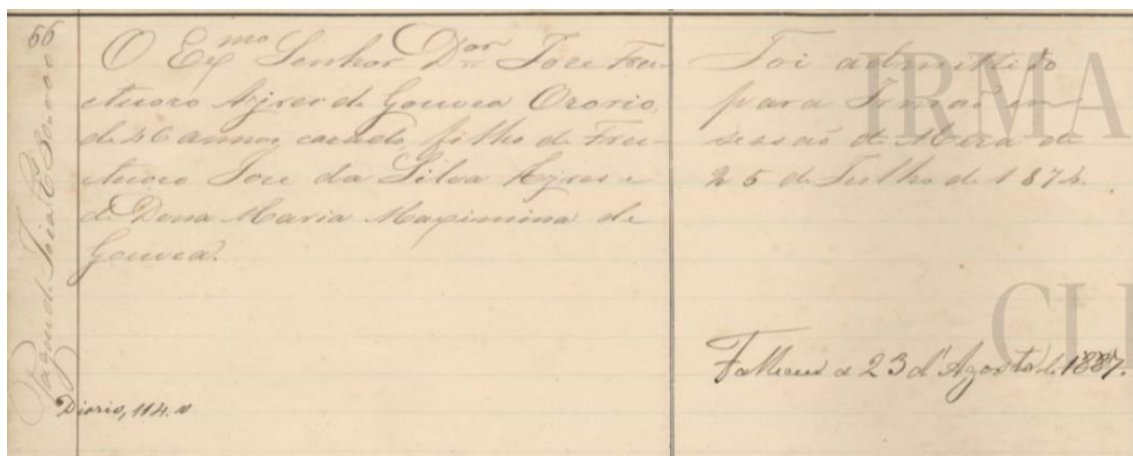 56
O Ex.mo Senhor D.or Joze Fru-
ctuozo Ayres de Gouvea Ozorio,
de 46 annos, cazado, filho de Fru-
ctuozo Joze da Silva Ayres e
de Dona Maria Maximina de
Gouvea.
Diario, 114. v
Foi admittido
para Irmaõ em
sessaõ de Meza de
25 de Julho de 1874.
Falleceu a 23 d'Agosto de 1887.
Pagou de Joia
IRMA
CLI